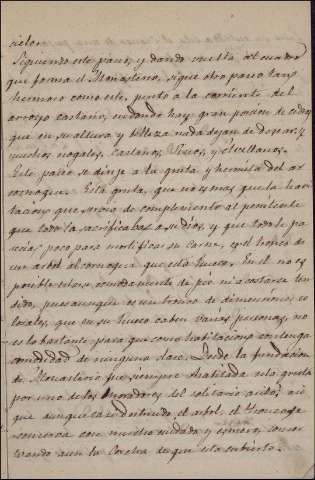 cielo.
Siguiendo este paseo, y dando vuelta al cuadro
que forma el Monasterio, sigue otro paseo tan
hermoso como este, junto a la corriente del
arroyo Castaño, en donde hay gran porcion de cedros
que en su altura y belleza nada dejan de desear, y
muchos nogales, Castaños, y Avellanos.
Este paseo se dirije a la gruta, y hermita del al
cornoque. Esta gruta, que no es mas que la habi
tacion que servia de complemento al penitente
que todo lo sacrificaba a su Dios, y que todo le pa
recia poco para mortificar su carne, es el tronco de
un arbol alcornoque que esta hueco. En el no es
posible estar comodamente de pie ni acostarse ten
dido, pues aunque es un tronco de dimensiones co
losales, que en su hueco caben varias personas, no
es lo bastante para que como habitacion contenga
comodidad de ninguna clase. Desde la fundacion
de Monasterio fue siempre habitada esta gruta
por uno de los moradores del solitario asilo; asi
que aunque esta destruido el arbol, el
con mucho cuidado y esmero, conser
vando aun la Corcha de que esta cubierto.